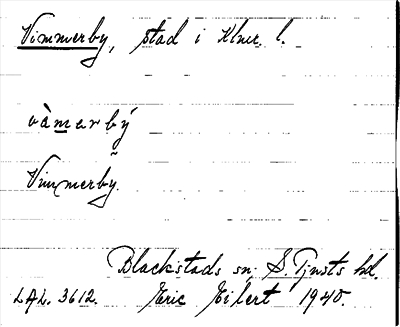 Vimmerby, stad i Klmr. l.
vàmərbý
Vimmerby.
Blackstads sn, S. Tjusts hd.
LAL. 3612. Eric Eilert 1940.